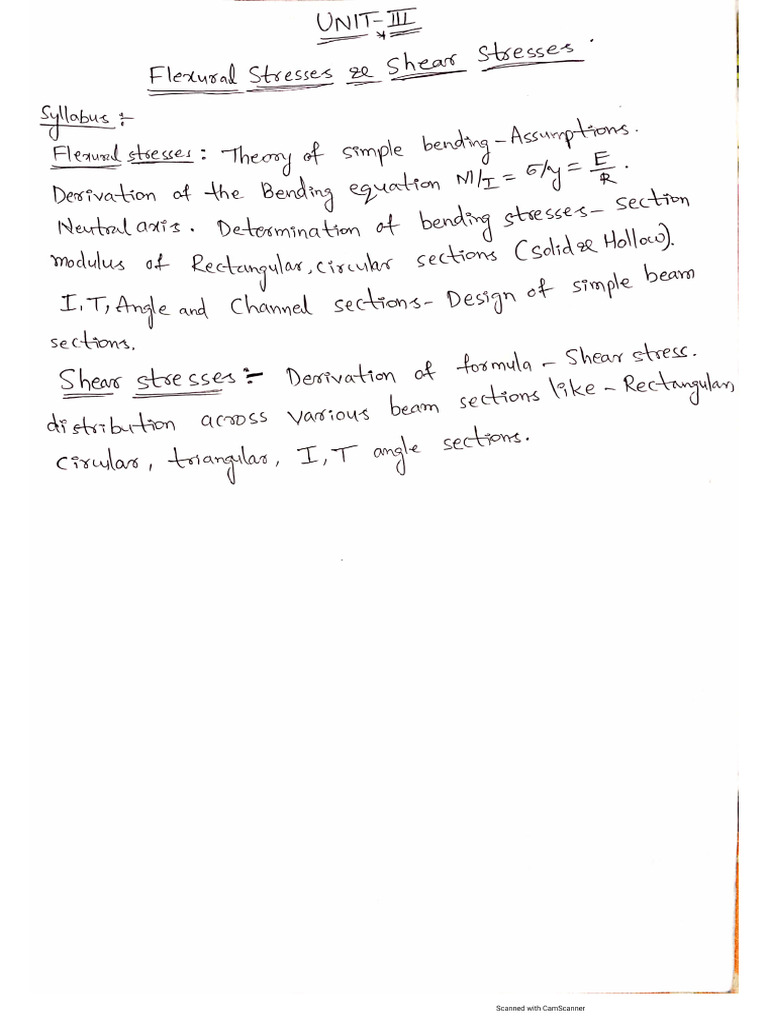 UNIT-III
Flexural Stresses & Shear Stresses.
Syllabus :-
Flexural stresses : Theory of simple bending - Assumptions.
Derivation of the Bending equation M/I = σ/y = E/R.
Neutral axis. Determination of bending stresses - section
modulus of Rectangular, circular sections (Solid & Hollow).
I, T, Angle and Channel sections - Design of simple beam
sections.
Shear stresses :- Derivation of formula - Shear stress.
distribution across various beam sections like - Rectangular,
circular, triangular, I, T angle sections.
Scanned with CamScanner